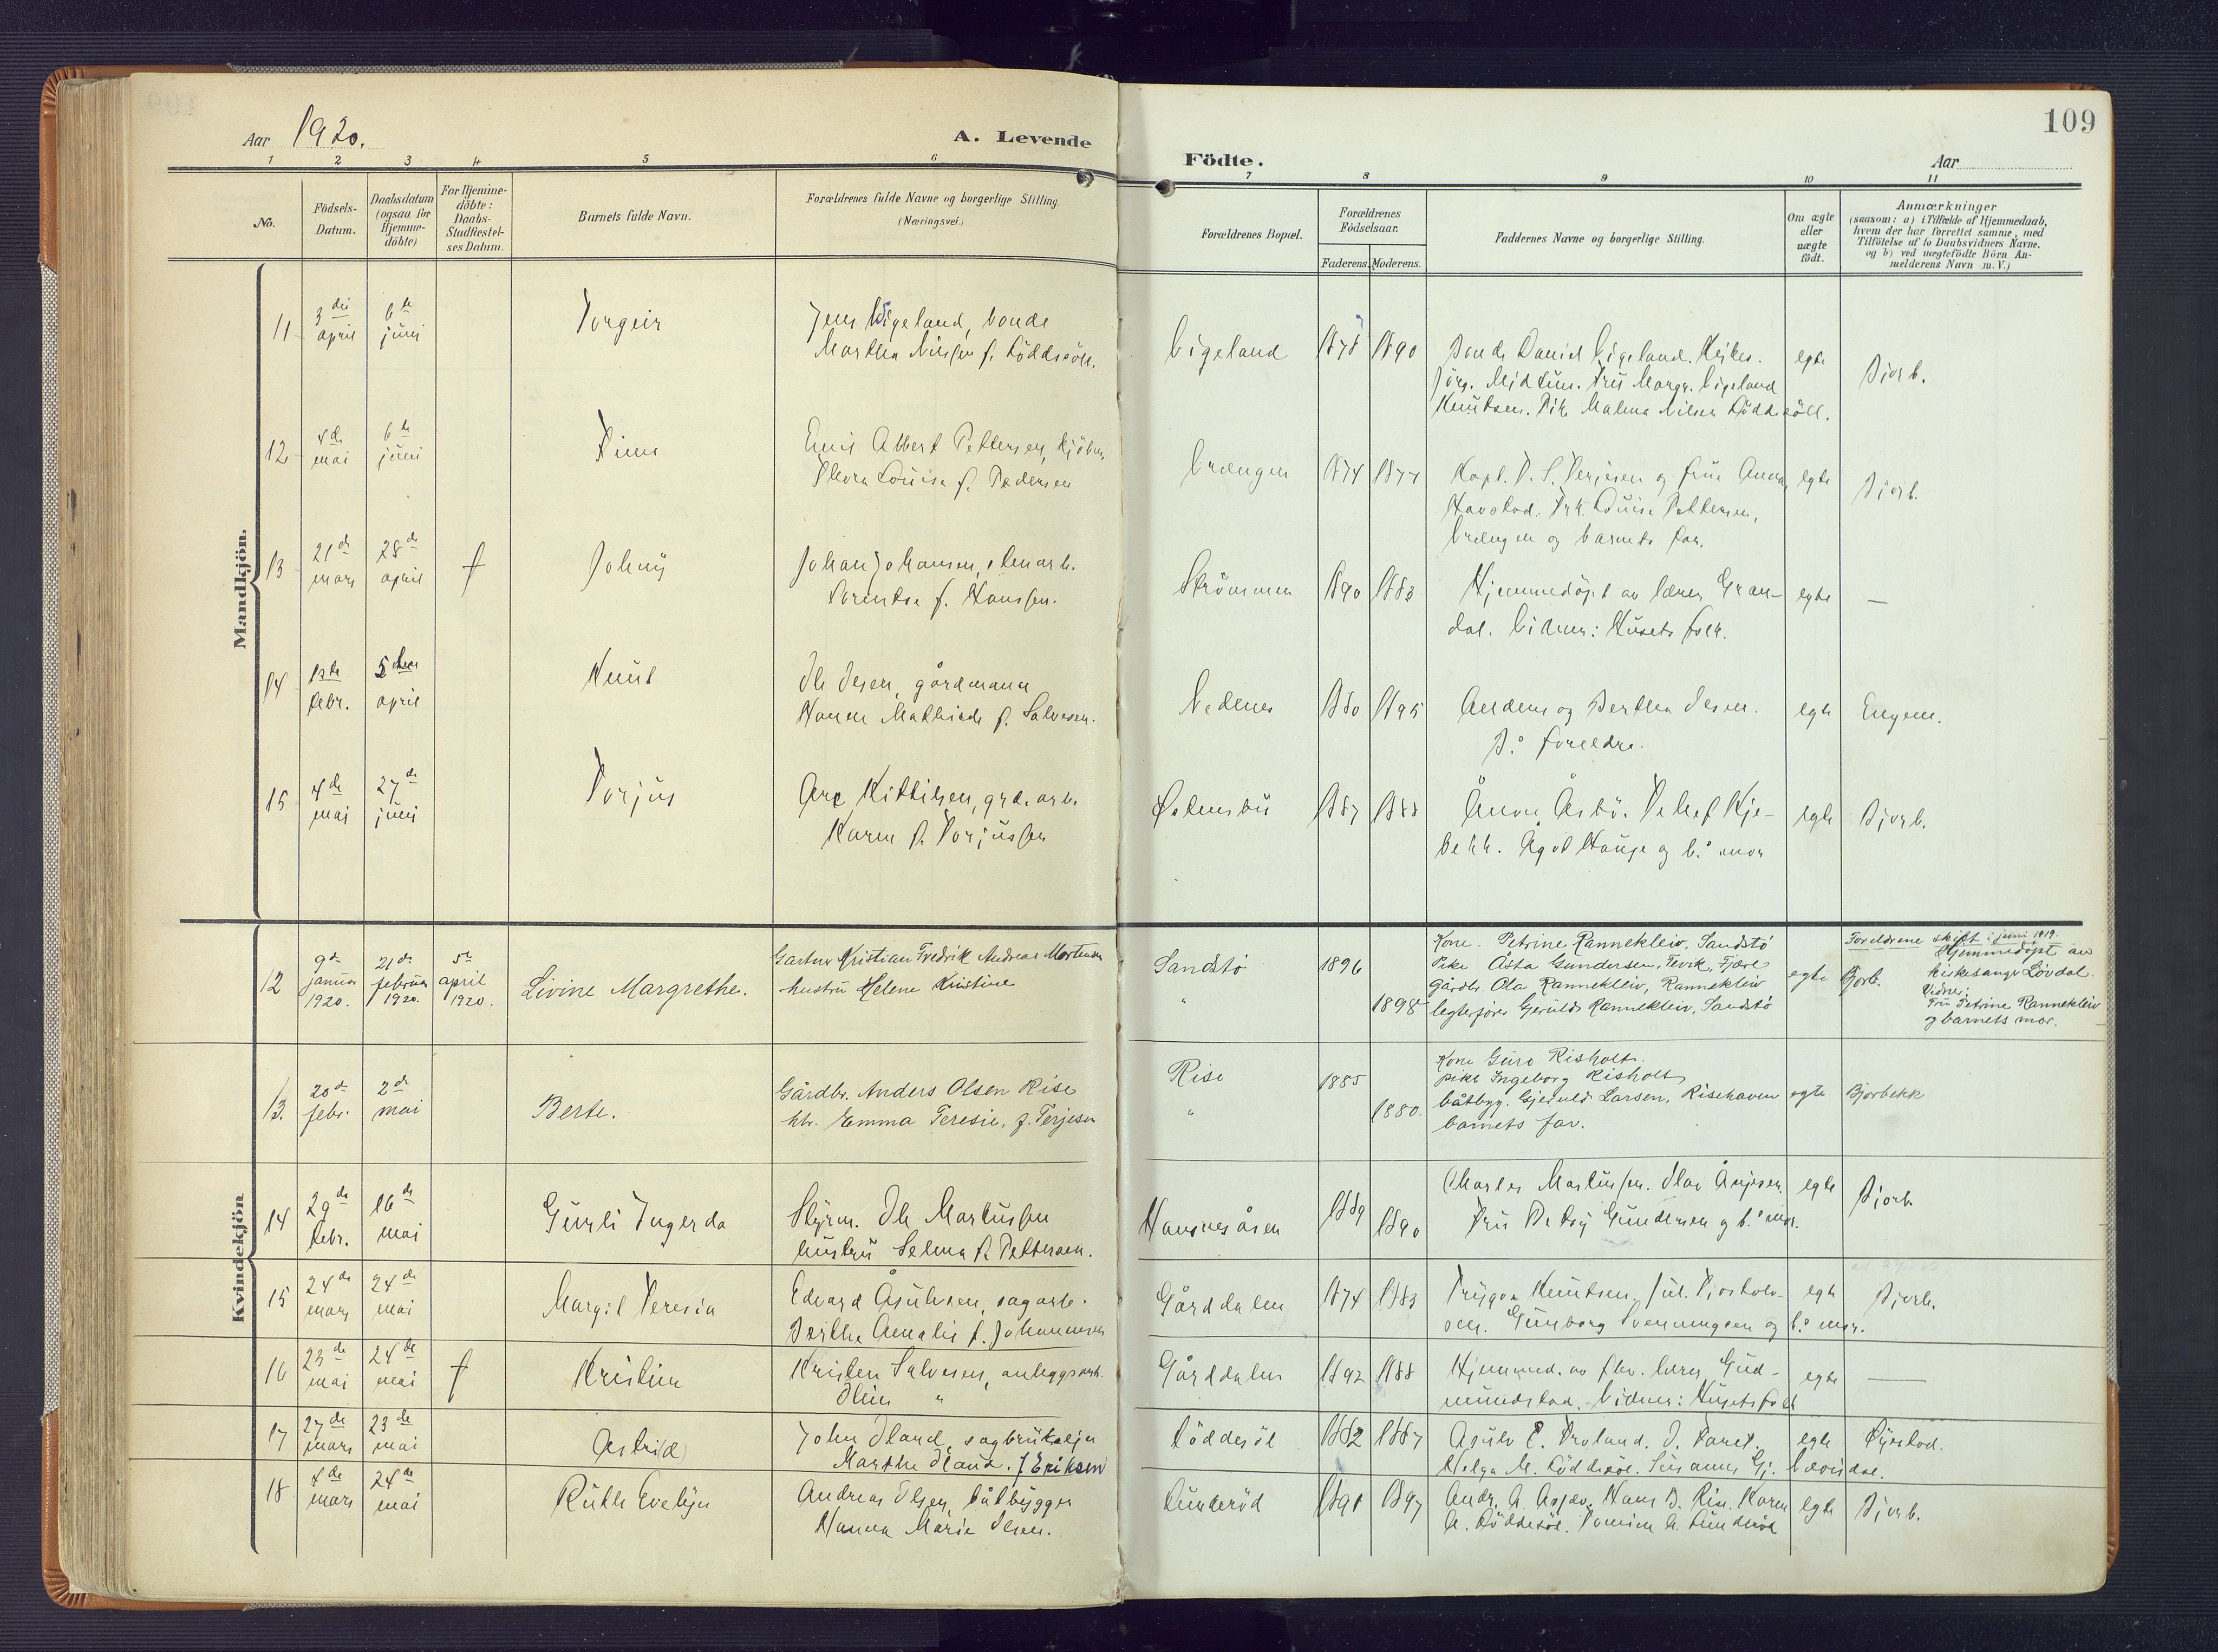 109
Aar 1920.
A. Levende
Födte.
Aar
1 2 3 4 5 6 7 8 9 10 11
No.
Födsels-
Datum.
Daabsdatum
(ogsaa for
Hjemme-
döbte)
For Hjemme-
döbte:
Daabs-
Stadfæstel-
ses Datum.
Barnets fulde Navn.
Forældrenes fulde Navne og borgerlige Stilling.
(Næringsvei.)
Forældrenes Bopæl.
Forældrenes
Födselsaar.
Faderens. Moderens.
Faddernes Navne og borgerlige Stilling.
Om ægte
eller
uægte
födt.
Anmærkninger
(saasom: a) i Tilfælde af Hjemmedaab,
hvem der har forrettet samme, med
Tilföielse af to Daabsvidners Navne.
og b) ved uægtefödte Börn An-
melderens Navn m. V.)
Mandkjön.
11 3die april 6te juni
Torgeir
Jens Vigeland, bonde
Martha Nilssen f. Löddesöll.
Vigeland
1878 1890
Bonde Daniel Vigeland.
Midtun. Fru Margr. Vigeland
Knutsen. Malena Nilsen Lödde söll.
egte
Bjorb.
12 4de mai 6te juni
Finn
Emil Albert Pettersen, kjöbm.
Thora Louise f. Pedersen
Vrængen
1874 1877
Kapt. T. S. Terjesen og frue Anna,
Havstad. Frk. Louise Pettersen,
Vrængen og barnets far.
egte
Bjorb.
13 21de mars 28de april †
Johny
Johan Johansen, stenarb.
Lorentse f. Hanssen.
Strömmen
1890 1883
Hjemmedöpt av lærer Gran-
dal. Vidner: Husets folk.
egte
—
14 1ste febr. 5te april
Knut
Ole Olsen, gårdmann
Hanna Mathilde f. Salvesen.
Nedenes
1880 1895
Anders og Berthea Olsen.
B.s foreldre.
egte
Engene.
15 4de mai 27de juni
Torjus
Are Kittilsen, grd.arb.
Karen f. Torjussen
Östensbu
1887 1888
Ånon Åsbö. Tellef Kje-
bekk. Ågot Hauge og b.s mor
egte
Bjorb.
Kvindekjön
12 9de januar 1920. 21de februar 1920. 5te april 1920.
Livine Margrethe.
Gartner Kristian Fredrik Andreas Mortensen
hustru Helene Kristine
Sandstö
"
1896
1898
Kone. Petrine Rannekleiv. Sandstö
Pike Åsta Gundersen, Fevik, Fjære
Gårdbr. Ola Rannekleiv, Rannekleiv
legterförer Gerulds Rannekleiv, Sandstö
egte
Bjorb.
Foreldrene skift i juni 1919.
Hjemmedöpt av
kirkesanger Lövdal.
Vidner:
Fru Petrine Rannekleiv
og barnets mor.
13. 20de febr. 2de mai
Berte.
Gårdbr. Anders Olsen Rise
htr. Emma Teresie, f. Terjesen
Rise
"
1885
1880.
Kone Guro Risholt.
pike Ingeborg Risholt
båtbyg. Gjeruld Larsen, Risehaven
barnets far.
egte
Bjorbekk
14 29de febr. 16de mai
Gurli Ingerda
Styrm. Ole Martinssen
hustru Selma f. Pettersen.
Hansnesåsen
1889
1890
Charles Martinssen. Olav
Fru Betsy Gundersen og b.s mor.
egte
Bjorb.
15 24de mars 24de mai
Margit Teresia
Edvard Åsulvsen, sagarb.
Berthe Amalie f. Johannesen
Gårddalen
1874 1883
Trygve Knutsen.
Gunborg Svenningsen og b.s mor.
egte
Bjorb.
16 23de mai 24de mai †
Kristine
Kristen Salvesen, anleggsarb.
Oline "
Gårddalen
1892 1888
Hjemmed. av fhv. lærer Gud-
mundstad. Vidner: Husets folk
egte
—
17 27de mars 23de mai
Astri(d)
John Oland, sagbrukseier
Marthe Oland. f Eriksen
Löddesöl
1882 1887
Asulv E. Froland.
Helga M. Löddesöl. Susanne Gj. Vovisdal.
egte
Öyestad.
18 4de mars 24de mai
Ruth Evelyn
Andreas Olsen, båtbygger
Hanna Marie Olsen.
Lunderöd
1891 1897
Andr. A. Hans B. Rise. Karen
A. Löddesöl. A. Lunderöd
egte
Bjorb.